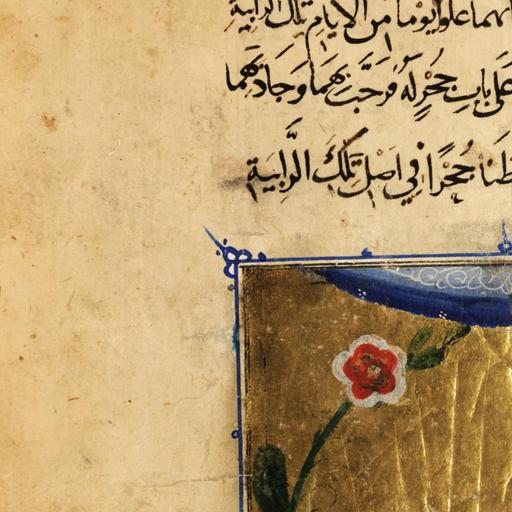 انهما علوا يوما من الايام تلك الرابية
على باب جحر له فرحبت بهما وجاذبهما
جحرا في اصل تلك الرابية